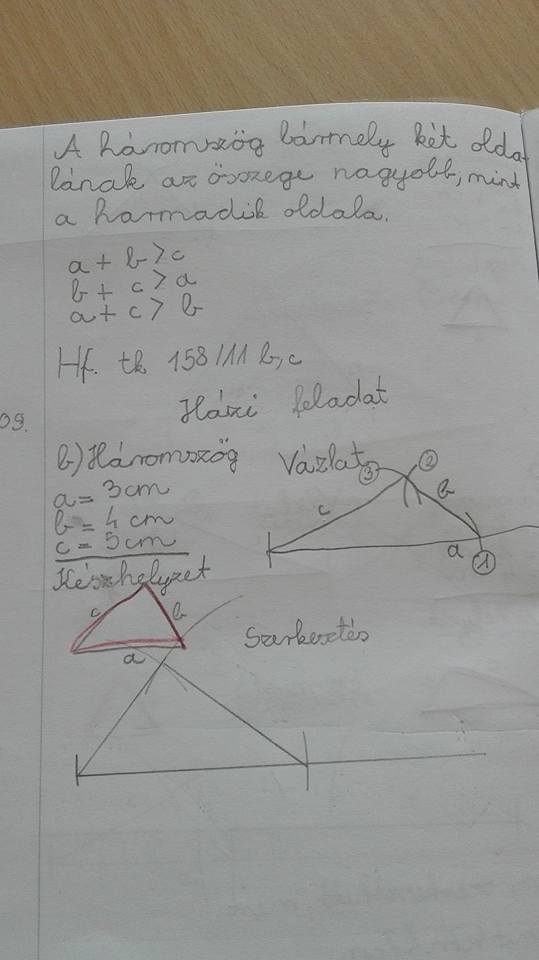 A háromszög bármely két olda-
lának az összege nagyobb, mint
a harmadik oldala.
a + b > c
b + c > a
a + c > b
Hf. tk 158/11 b,c
Házi feladat
09.
b) Háromszög
a = 3 cm
b = 4 cm
c = 5 cm
Vázlat
③ ②
c b
a ①
Készhelyzet
c b
a
Szerkesztés